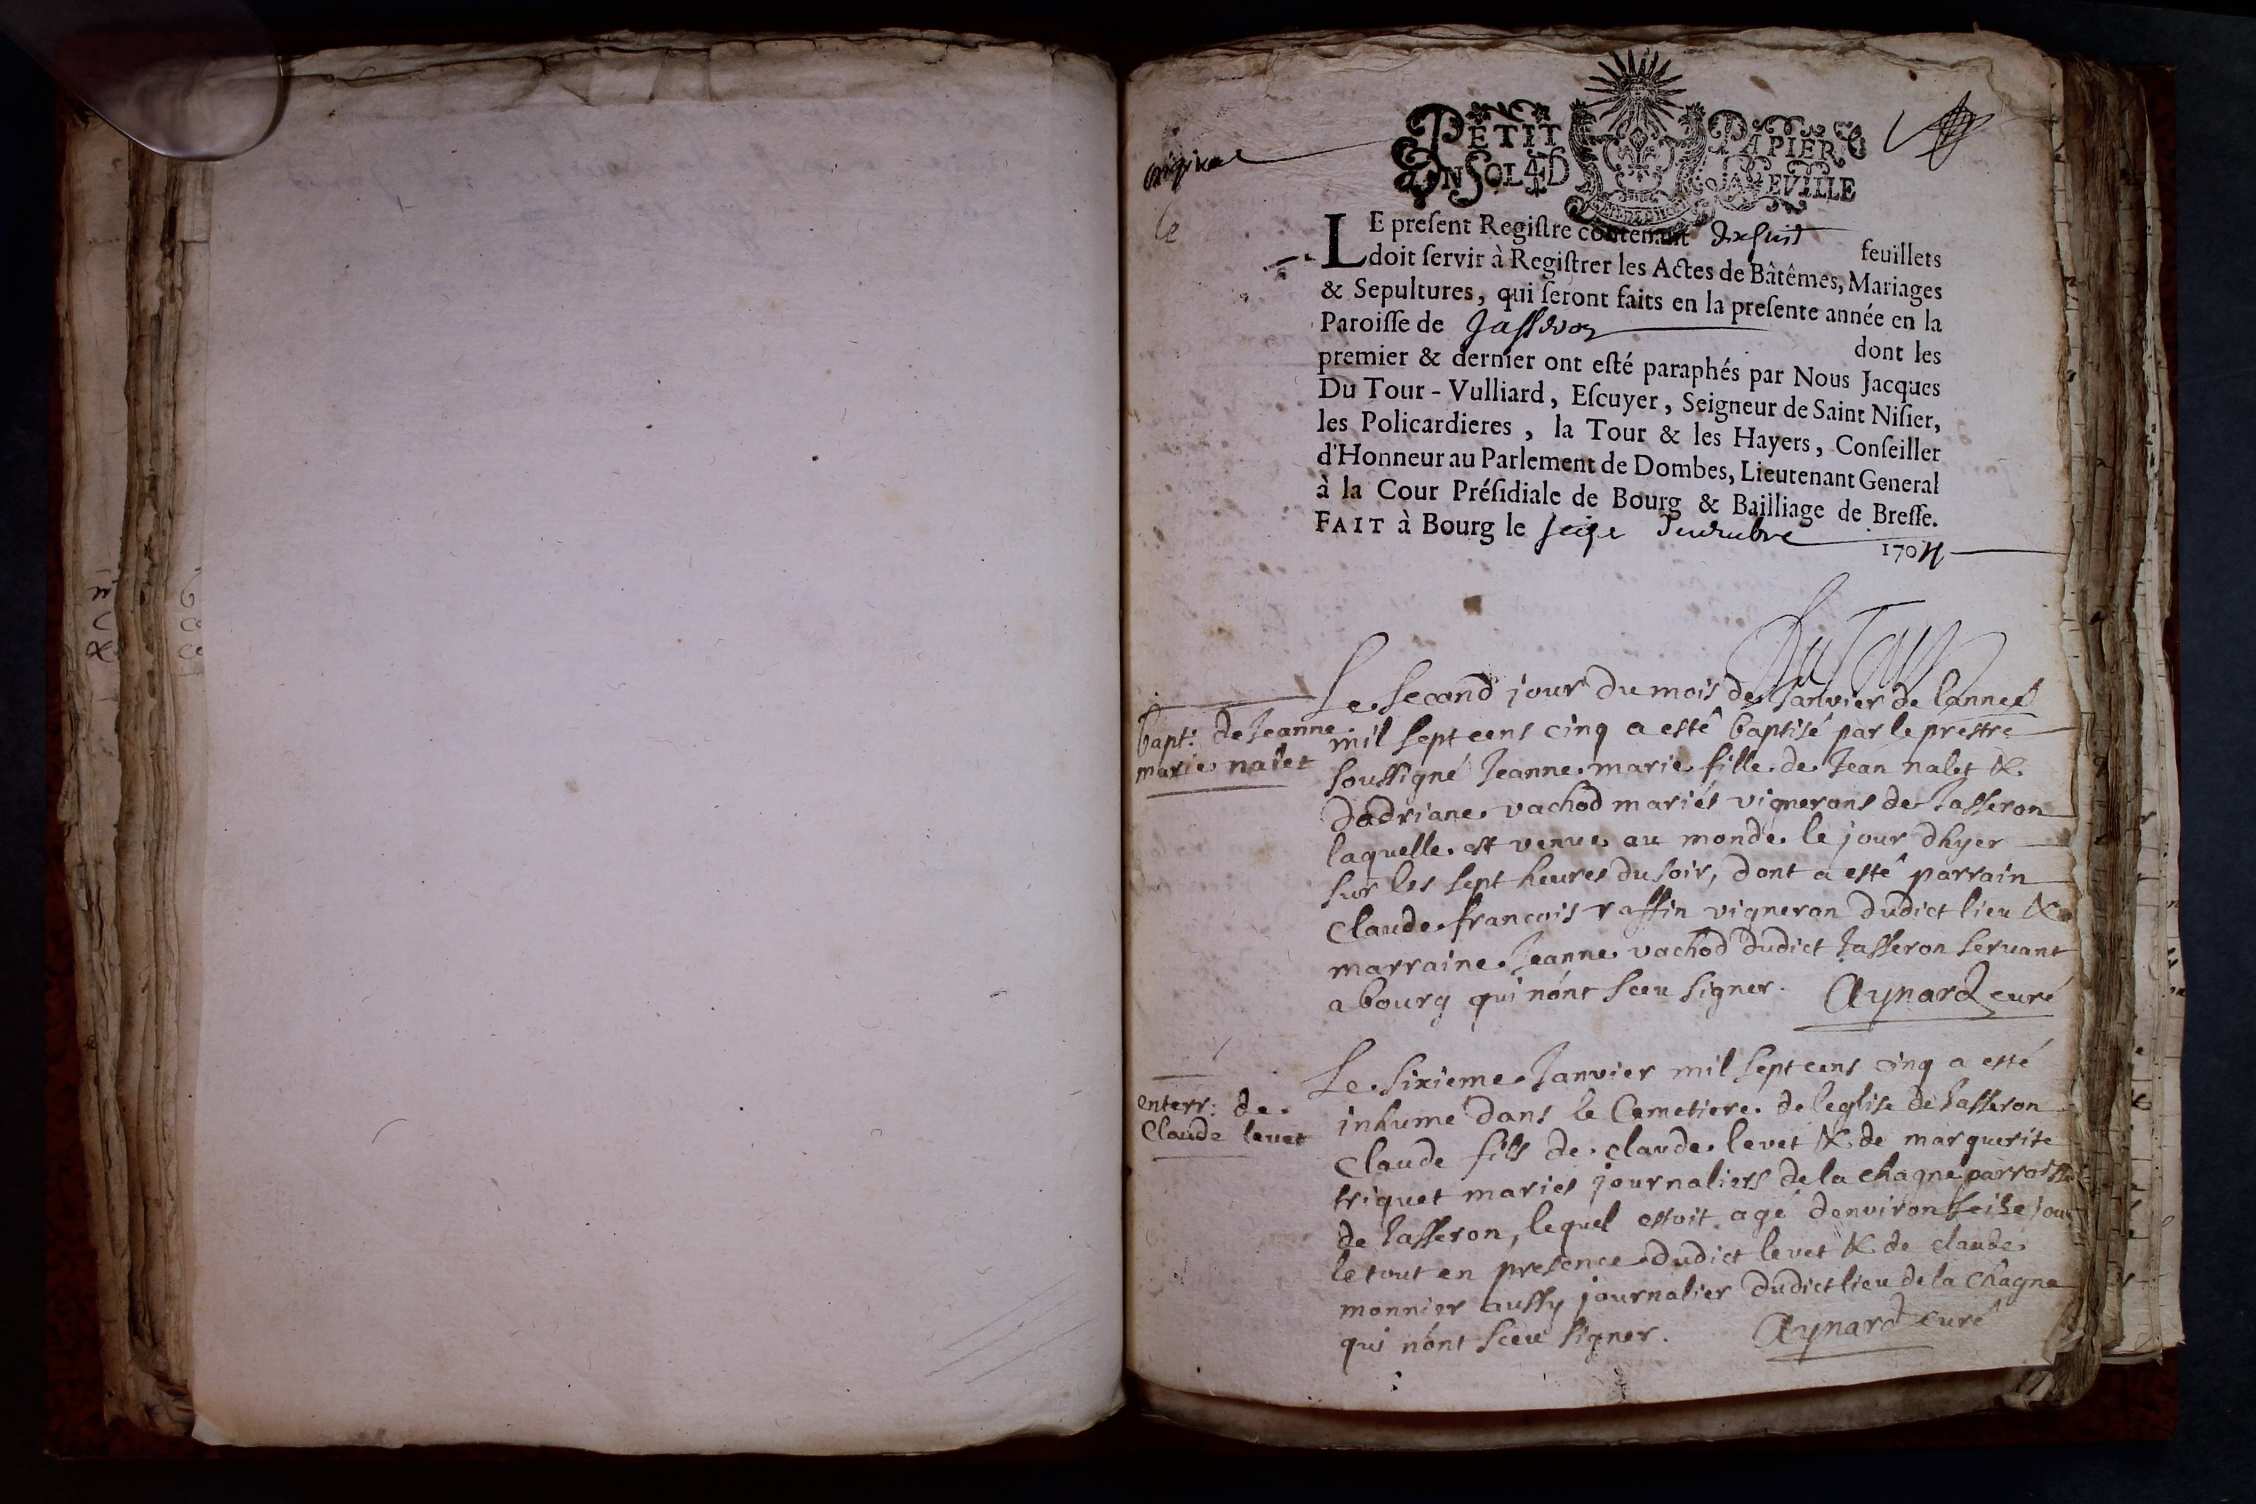 original
PETIT PAPIER
UN SOL 4 D LA FEUILLE
LE preſent Regiſtre contenant dixhuit feuillets
doit ſervir à Regiſtrer les Actes de Bâtêmes, Mariages
& Sepultures, qui ſeront faits en la preſente année en la
Paroiſſe de Jasseron dont les
premier & dernier ont eſté paraphés par Nous Jacques
Du Tour-Vulliard, Eſcuyer, Seigneur de Saint Niſier,
les Policardieres, la Tour & les Hayers, Conſeiller
d'Honneur au Parlement de Dombes, Lieutenant General
à la Cour Préſidiale de Bourg & Bailliage de Breſſe.
FAIT à Bourg le seize 170
Du Tour
bapt: de Jeanne
marie nalet
Le second jour du mois de Janvier de lannee
mil sept cens cinq a esté baptisé par le prestre
soussigné Jeanne marie fille de Jean nalet &
dadriane vachod mariés vignerons de Jasseron
laquelle est venue au monde le jour dhyer
sur les sept heures du soir, dont a esté parrain
Claude francois raffin vigneron dudict lieu &
marraine Jeanne vachod dudict Jasseron servant
a bourg qui nónt sceu signer. Aynard curé
enterr: de
Claude levet
Le sixieme Janvier mil sept cens cinq a esté
inhumé dans le Cemetiere de leglise de Jasseron
Claude fils de claude levet & de marguerite
triquet mariés journaliers de la chagne parroisse
de Jasseron, lequel estoit agé denviron seize jou
le tout en presence dudict levet & de claude
monnier aussy journalier dudict lieu de la Chagne
qui nónt sceu signer. Aynard curé